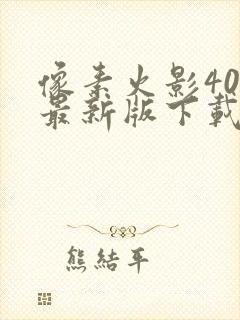 像素火影40
最新版下載
熊結平